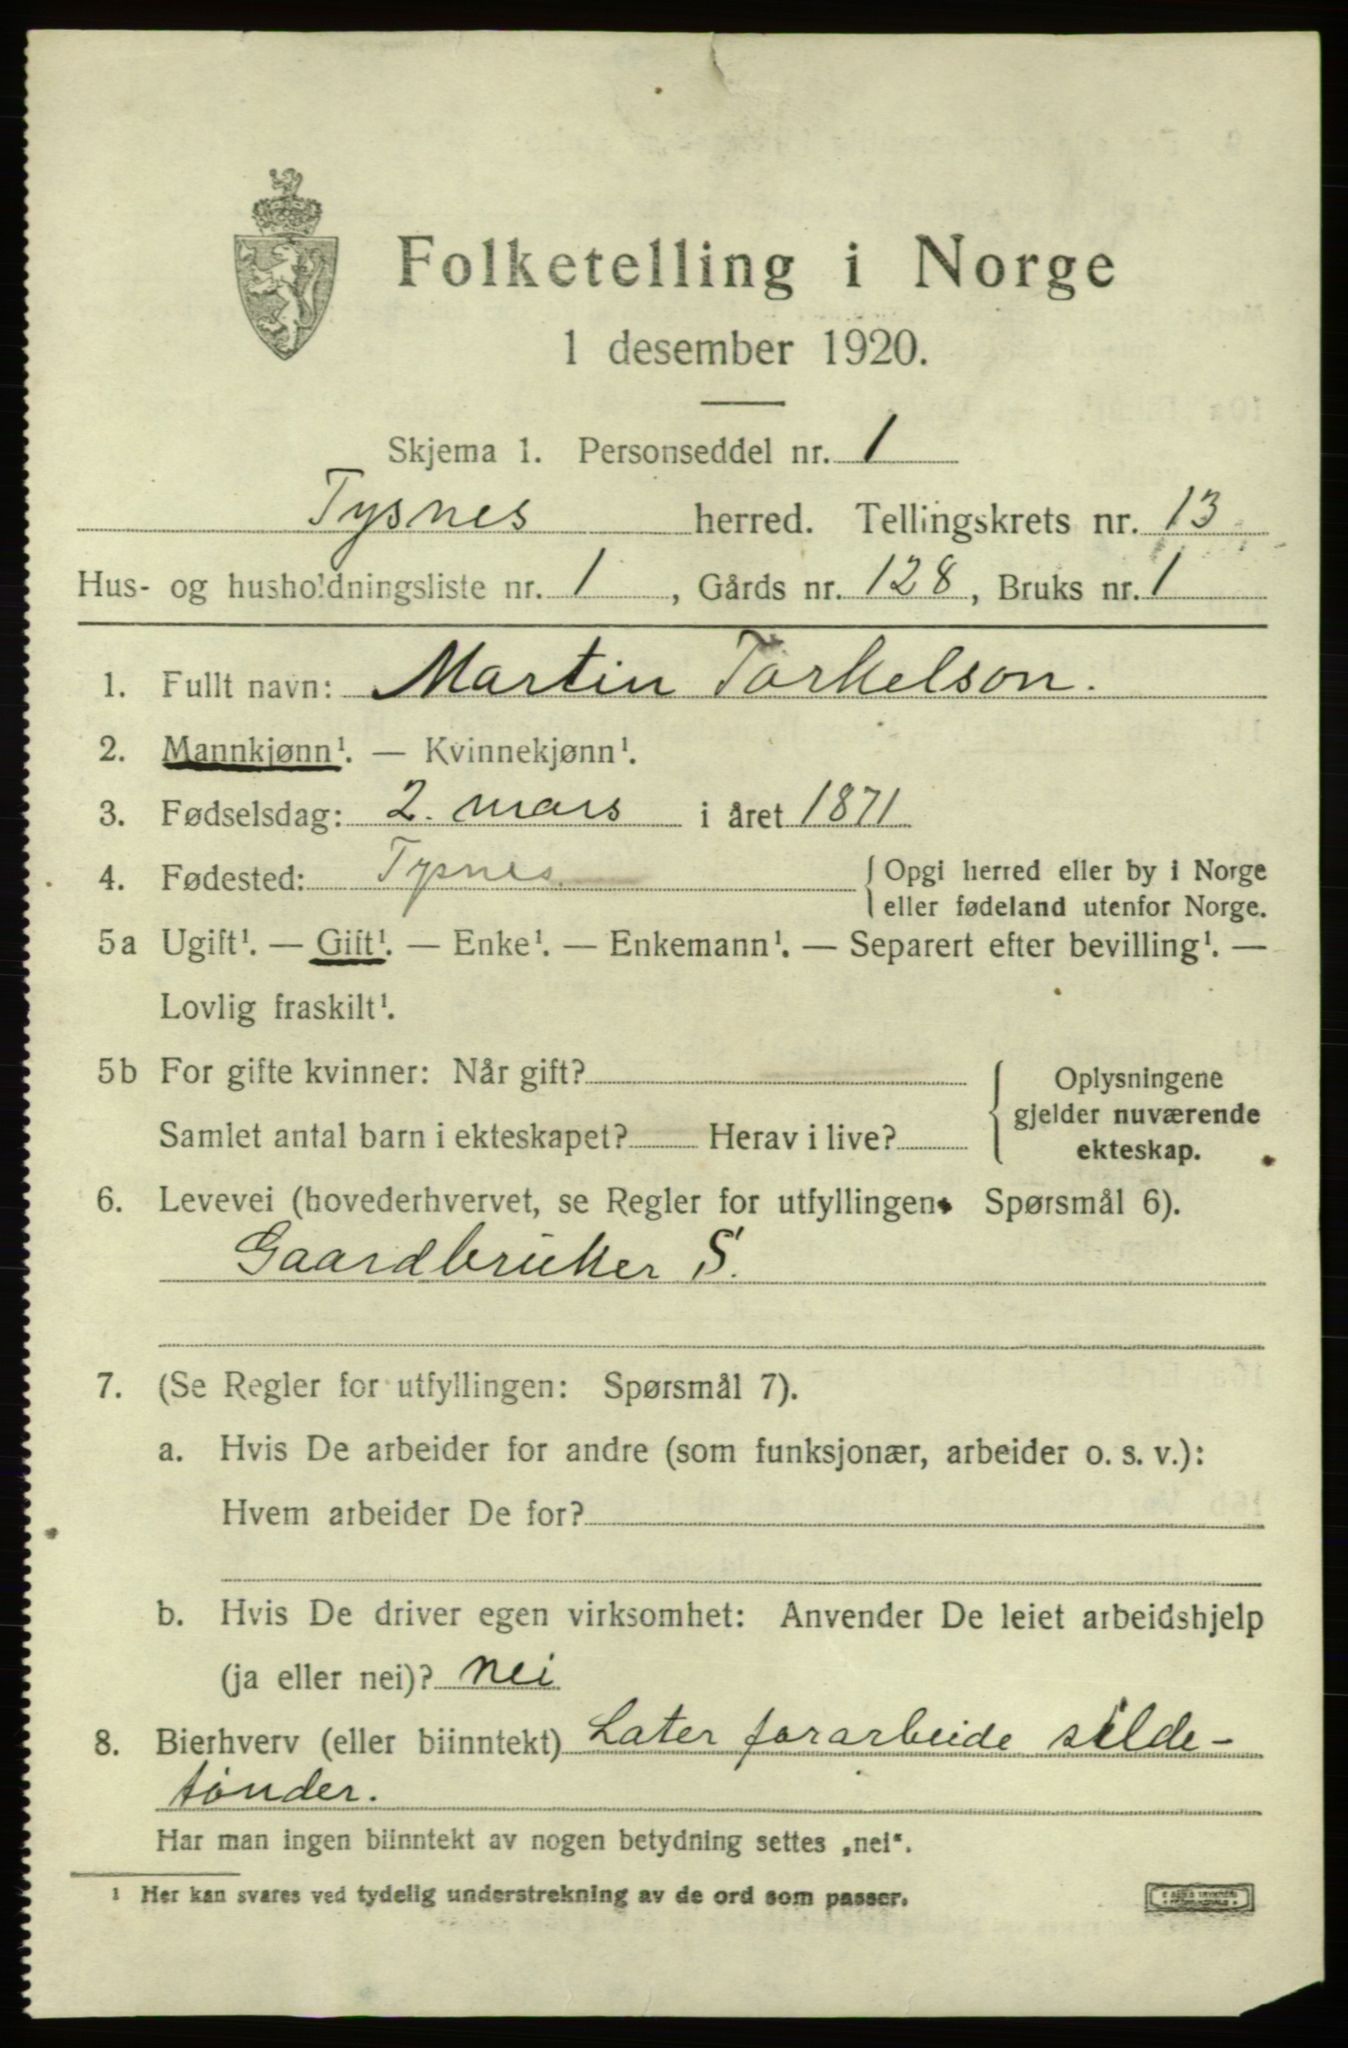 Folketelling i Norge
1 desember 1920.
Skjema 1. Personseddel nr. 1
Tysnes herred. Tellingskrets nr. 13
Hus- og husholdningsliste nr. 1, Gårds nr. 128, Bruks nr. 1
1. Fullt navn: Martin Torkelson.
2. Mannkjønn¹. — Kvinnekjønn¹.
3. Fødselsdag: 2. mars i året 1871
4. Fødested: Tysnes. { Opgi herred eller by i Norge
eller fødeland utenfor Norge.
5a Ugift¹. — Gift¹. — Enke¹. — Enkemann¹. — Separert efter bevilling¹. —
Lovlig fraskilt¹.
5b For gifte kvinner: Når gift?
Samlet antal barn i ekteskapet? Herav i live?
{ Oplysningene
gjelder nuværende
ekteskap.
6. Levevei (hovederhvervet, se Regler for utfyllingen. Spørsmål 6).
Gaardbruker S.
7. (Se Regler for utfyllingen: Spørsmål 7).
a. Hvis De arbeider for andre (som funksjonær, arbeider o. s. v.):
Hvem arbeider De for?
b. Hvis De driver egen virksomhet: Anvender De leiet arbeidshjelp
(ja eller nei)? nei
8. Bierhverv (eller biinntekt) Later forarbeide silde-
tønder.
Har man ingen biinntekt av nogen betydning settes „nei“.
¹ Her kan svares ved tydelig understrekning av de ord som passer.